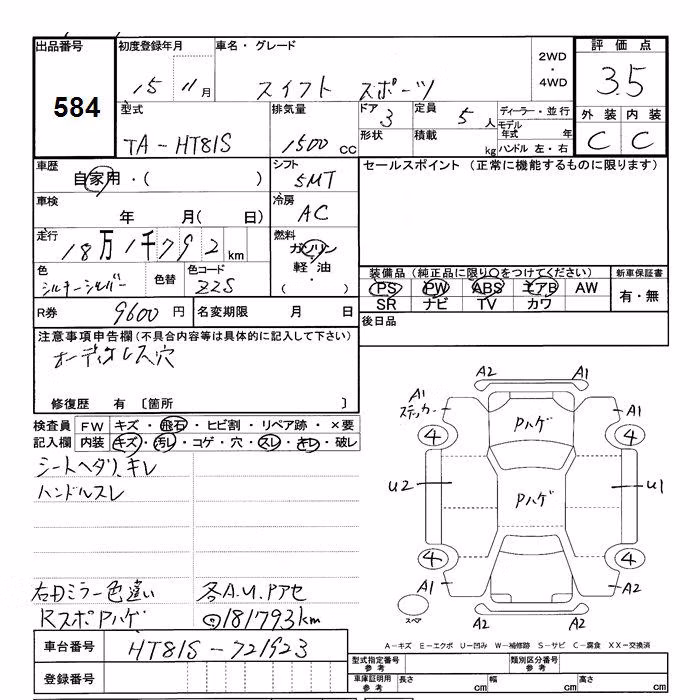 出品番号 初度登録年月 車名・グレード 評価点
584 15 11月 スイフト スポーツ 2WD・4WD 3.5
型式 排気量 ドア 定員 ディーラー・並行 外装 内装
TA-HT81S 1500cc 3 5人 モデル年式 年 C C
形状 積載 kg ハンドル 左・右
車歴 自家用・( ) シフト 5MT セールスポイント (正常に機能するものに限ります)
車検 年 月( 日) 冷房 AC
走行 18万1千792km 燃料 ガソリン 軽油 ( )
色 シルキーシルバー 色替 色コード Z2S 装備品(純正品に限り○をつけてください) 新車保証書
PS PW ABS エアB AW 有・無
SR ナビ TV カワ
R券 9600円 名変期限 月 日 後日品
注意事項申告欄(不具合内容等は具体的に記入して下さい)
オーディオレス穴
修復歴 有 〔箇所 〕
検査員 FW キズ・飛石・ヒビ割・リペア跡・×要
記入欄 内装 キズ・汚レ・コゲ・穴・スレ・キレ・破レ
シートヘタリ、キレ
ハンドルスレ
右Dミラー色違い 各A.U.Pアセ
RスポPハゲ ◎181793km
A2 A1
A1
ステッカー Pハゲ A1
4 4
U2 Pハゲ U1
4 4
A1 A2
スペア A2 A2
A-キズ E-エクボ U-凹み W-補修跡 S-サビ C-腐食 XX-交換済
車台番号 HT81S-721923 型式指定番号 参考 類別区分番号 参考
登録番号 車庫証明用 参考 長さ cm 幅 cm 高さ cm